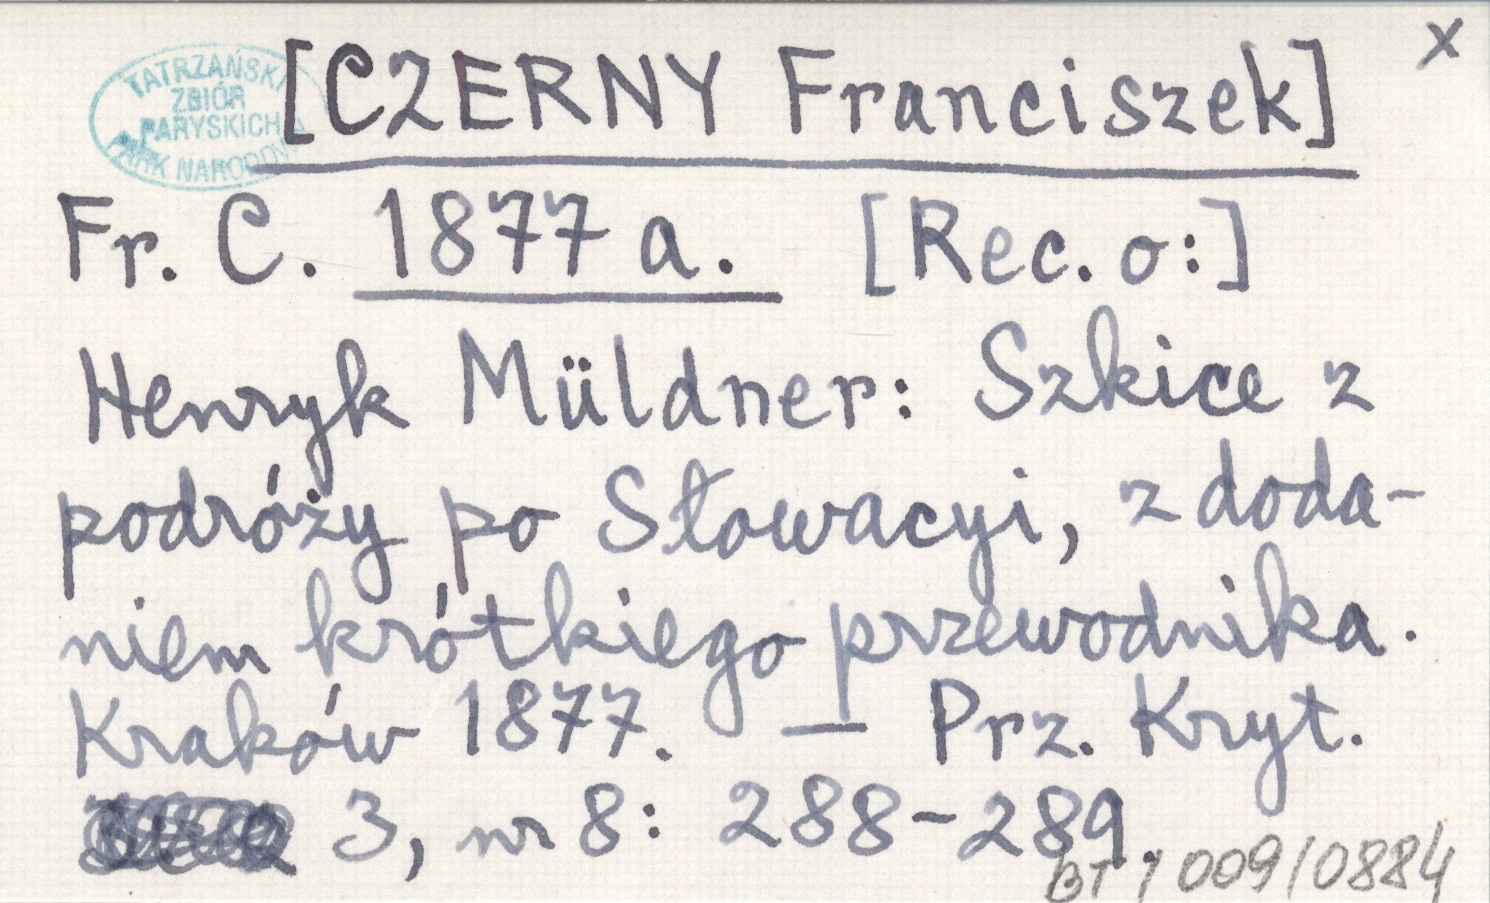 [CZERNY Franciszek]
x
TATRZAŃSKI
ZBIÓR
PARYSKICH
PARK NARODOWY
Fr. C. 1877 a. [Rec. o:]
Henryk Müldner: Szkice z
podróży po Słowacyi, z doda-
niem krótkiego przewodnika.
Kraków 1877. — Prz. Kryt.
3, nr 8: 288-289.
BT / 009/0884